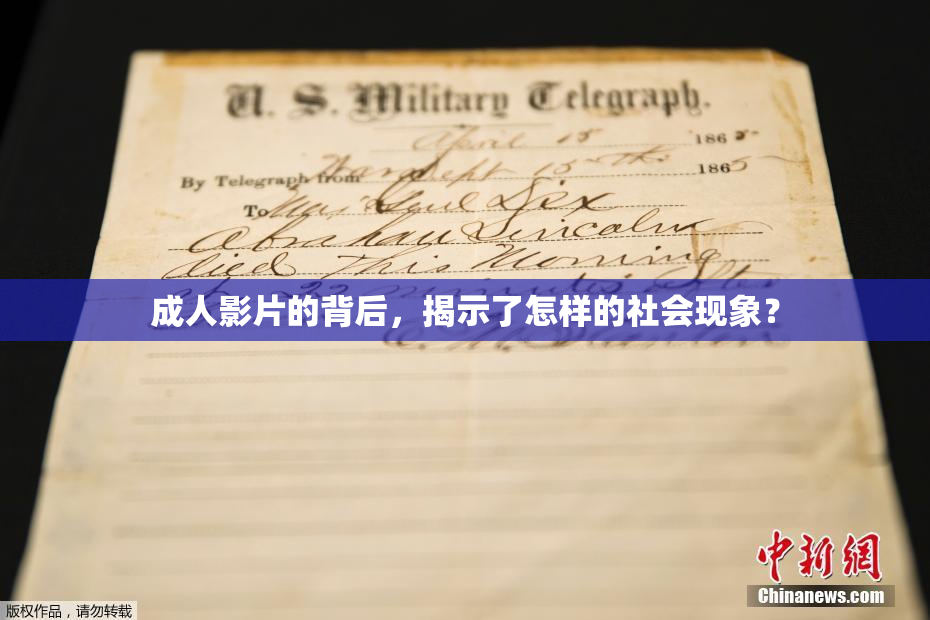 U. S. Military Telegraph.
April 15 1865
By Telegraph from War Dept 15th 1865
To Maj Genl Dix
Abraham Lincoln
died This Morning
at 22 minutes after
成人影片的背后，揭示了怎样的社会现象？
E. M. Stanton
中新網
Chinanews.com
版权作品，请勿转载